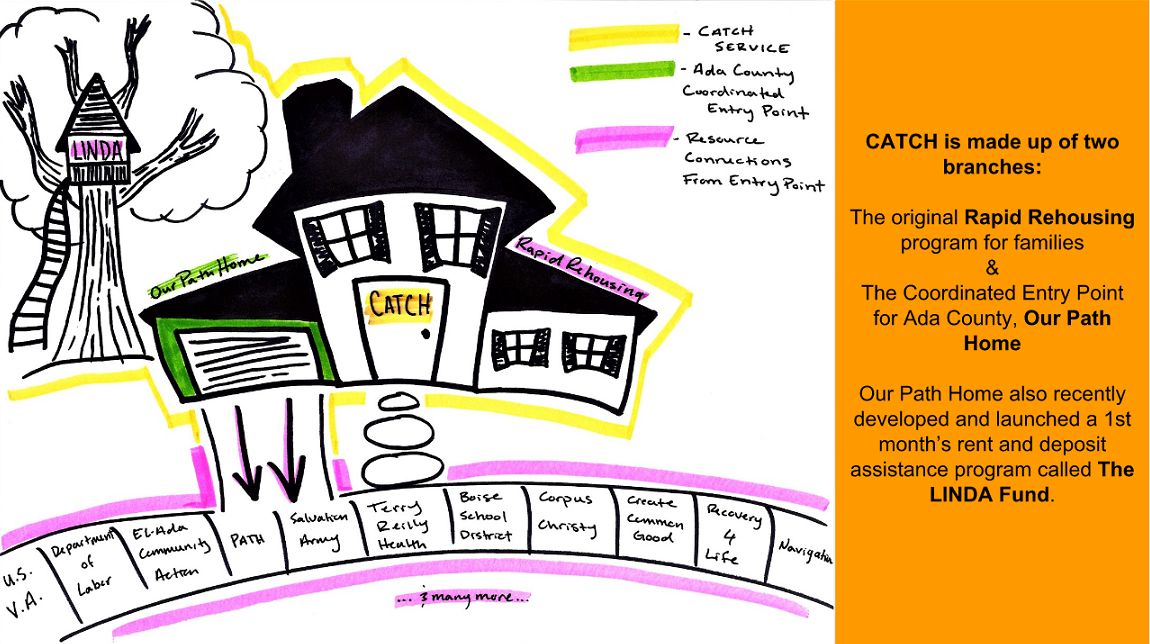 LINDA
Our Path Home
CATCH
Rapid Rehousing
- CATCH
SERVICE
- Ada County
Coordinated
Entry Point
- Resource
Connections
From Entry Point
U.S.
V.A.
Department
of
Labor
El-Ada
Community
Action
PATH
Salvation
Army
Terry
Reilly
Health
Boise
School
District
Corpus
Christy
Create
Common
Good
Recovery
4
Life
Navigation
... & many more...
CATCH is made up of two
branches:
The original Rapid Rehousing
program for families
&
The Coordinated Entry Point
for Ada County, Our Path
Home
Our Path Home also recently
developed and launched a 1st
month’s rent and deposit
assistance program called The
LINDA Fund.